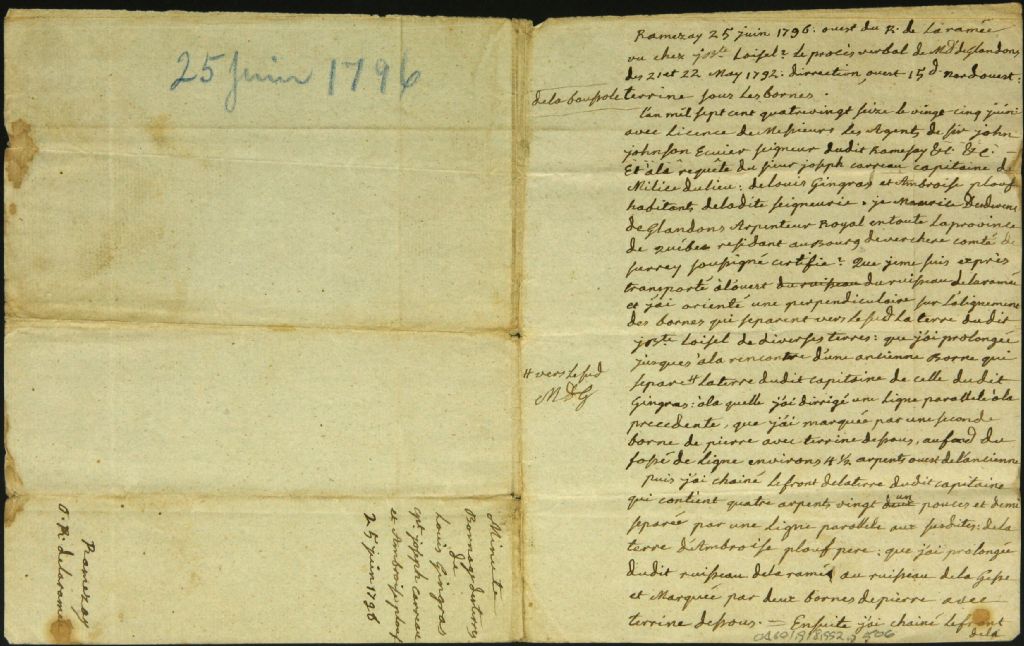 25 Juin 1796
Minute
Bornage des terres
de
Louis Gingras
cpt joseph carreau
et Ambroise plouf
25 juin 1796
Ramezay
O. R: delaramé
Ramezay 25 juin 1796. ouest du R: de laramée
vu chez jBte Loisel: le procés verbal de Mr deGlandons
des 21 et 22 May 1792: dirrection, ouest 15 d nord ouest:
dela boussole terrine sous les bornes.
L'an mil sept cent quatrevingt seize le vingt cinq juin
avec Licence de Messieurs les Agents de sir john
johnson Ecuier seigneur dudit Ramesay &c &c –
Et à la requête du sieur joseph carreau capitaine de
Milice du lieu: de louis Gingras et Ambroise plouf
habitants deladite seigneurie. je Maurice
deGlandons Arpenteur Royal en toute la province
de Québec residant au Bourg deverchere comté de
surrey soussigné certifie: Que jeme suis exprès
transporté à l'ouest du ruisseau du ruisseau de laramée
et j'ai orienté une perpendiculaire sur l'alignement
des bornes qui separent vers le sud la terre dudit
jBte Loisel de diverses terres: que j'ai prolongée
jusques à la rencontre d'une ancienne Borne qui
separe # la terre dudit capitaine de celle dudit
# vers le sud
MDG
Gingras: à la quelle j'ai dirrigé une ligne parallele à la
precedente, que j'ai marquée par une seconde
borne de pierre avec terrine dessous, au fond du
fossé de ligne environs 4 ½ arpents ouest de l'ancienne
puis j'ai chainé le front de la terre du dit capitaine
qui contient quatre arpents vingt deux un pouces et demi
separée par une ligne parallele aux susdites: de la
terre d'Ambroise plouf pere: que j'ai prolongée
dudit ruisseau de la ramée au ruisseau de la Gesse
et Marquée par deux bornes de pierre avec
terrine dessous. = Ensuite j'ai chainé le front
dela